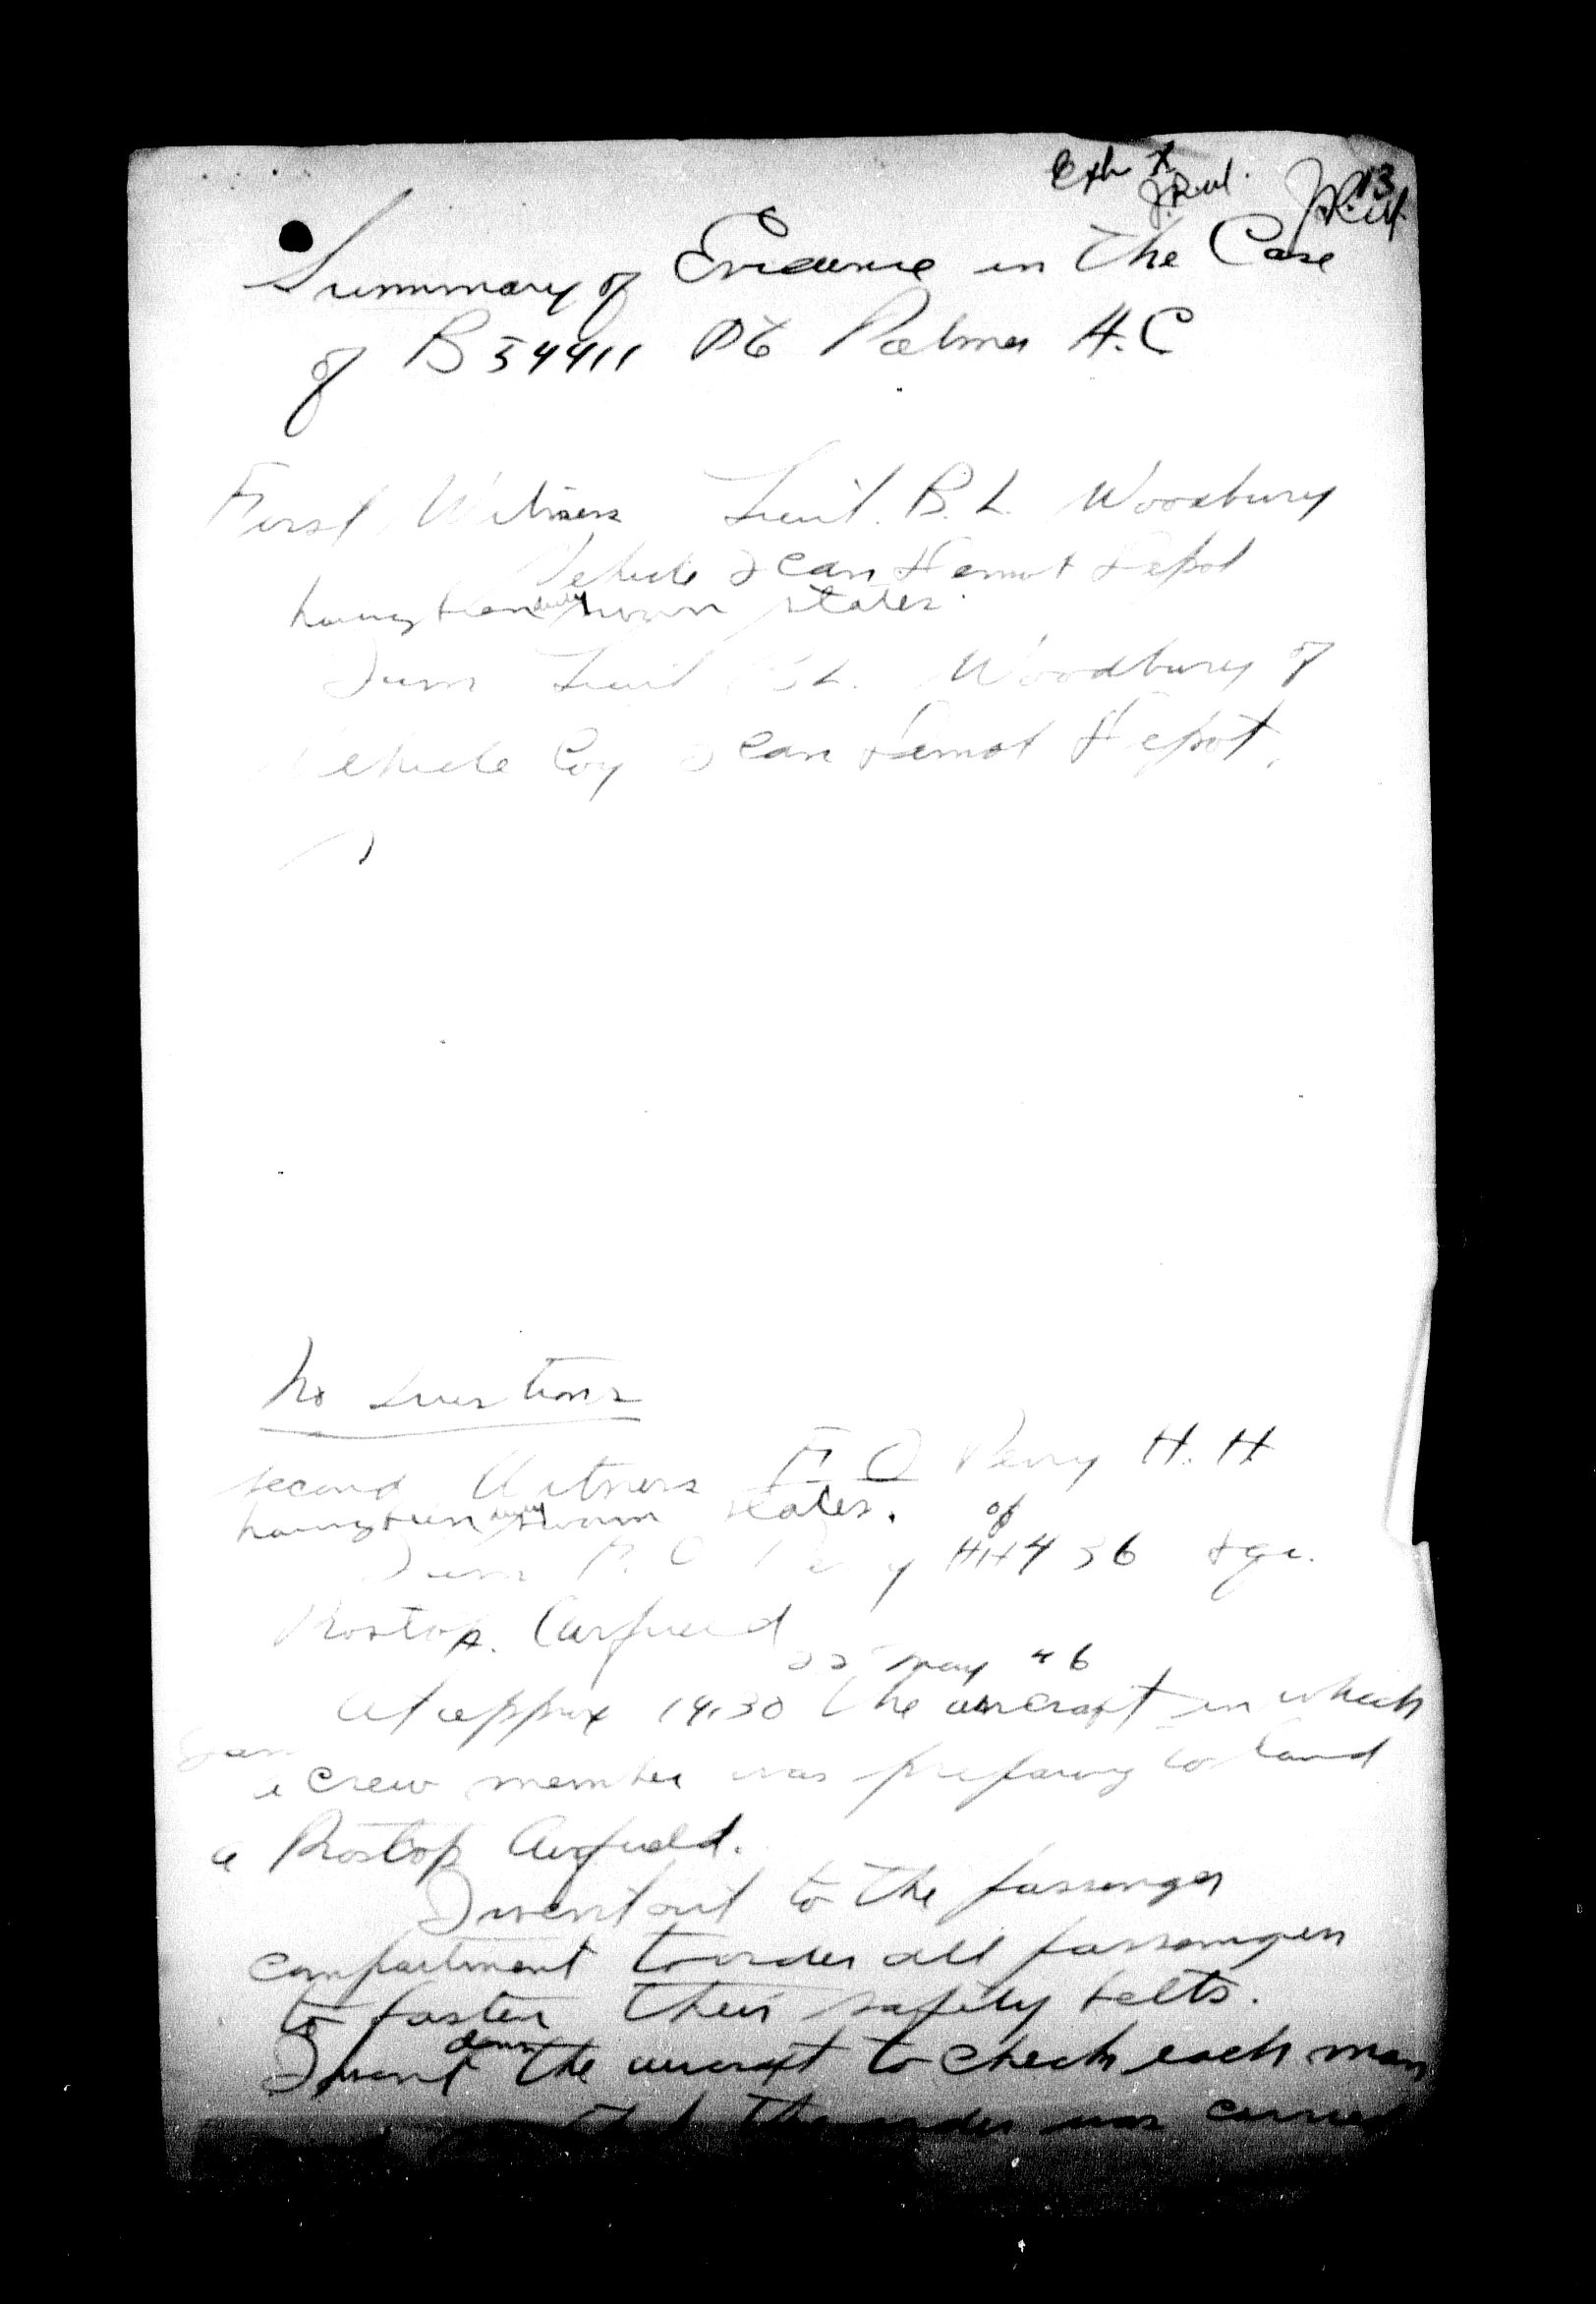 Exh X 13
J.R.W. J.R.W.
Summary of Evidence in the Case
of B54411 Pte Palmer H.C
First Witness Lieut. B.L. Woodbury
Vehicle 2 Can Demob Depot
having been duly sworn states.
I am Lieut B.L. Woodbury of
Vehicle Coy 2 Can Demob Depot.
No Questions
Second Witness F O Perry H.H
having been duly sworn states.
I am F.O Perry HH of 436
Airfield
22 May 46
At approx 14.30 the aircraft in which
I am
a crew member was preparing to land
a Airfield.
I went out to the passenger
compartment to order all passengers
to fasten their safety belts.
I went down the aircraft to check each man
the order was carried